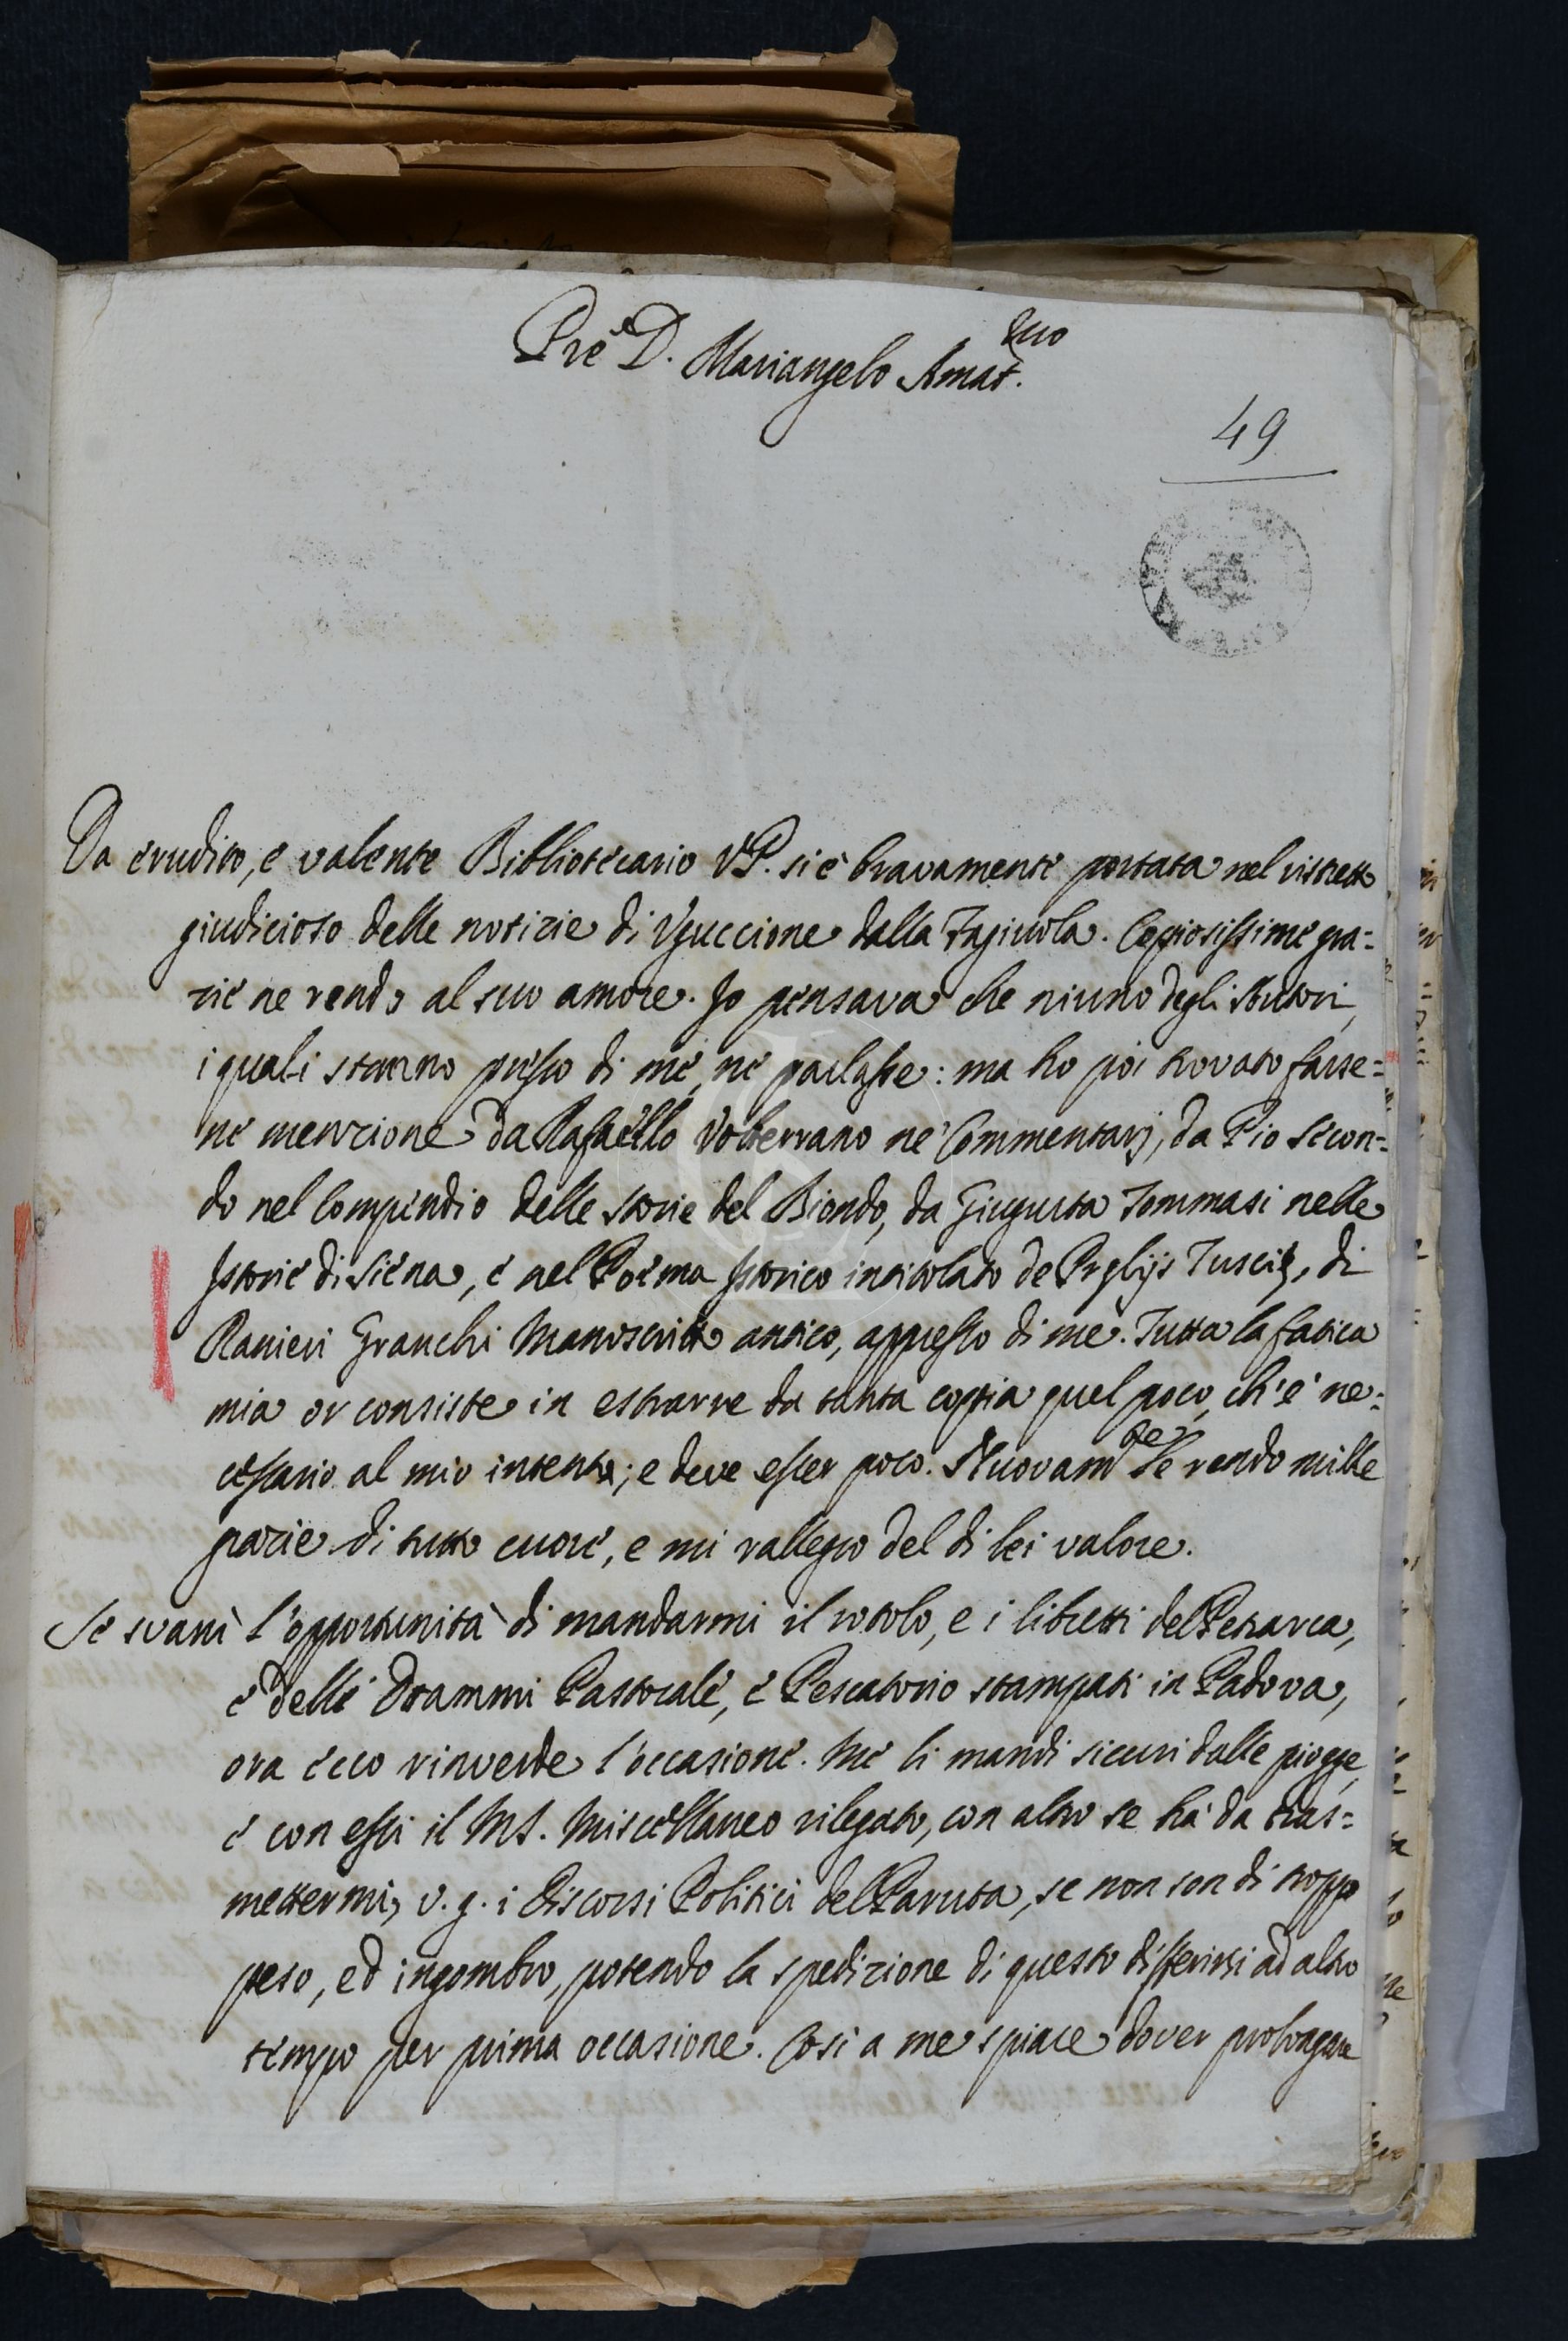 Pre D. Mariangelo Amat.mo
49
Da erudito, e valente Bibliotecario V.P. si è bravamente portata nel ristretto
giudicioso delle notizie di Uguccione dalla Fagiuola. Copiosissime gra=
zie ne rendo al suo amore. Io pensava che niuno degli Autori,
i quali stanno presso di me, ne parlasse: ma ho poi trovato farse=
ne menzione da Rafaello Volterrano ne' Commentarj, da Pio Secon=
do nel Compendio delle Storie del Biondo, da Giugurta Tommasi nelle
Istorie di Siena, e nel Poema Istorico intitolato de Pręlijs Tuscię, di
Ranieri Granchi Manoscritto antico, appresso di me. Tutta la fatica
mia or consiste in estrarre da tanta copia quel poco, ch'è ne=
cessario al mio intento; e deve esser poco. Nuovamte Le rendo mille
grazie di tutto cuore, e mi rallegro del di lei valore.
Se svanì l'opportunità di mandarmi il rotolo, e i libretti del Petrarca,
e delli Drammi Pastorale, e Pescatorio stampati in Padova,
ora ecco rinverde l'occasione. Me li mandi sicuri dalle piogge,
e con essi il MS. Miscellaneo rilegato, con altro se ha da tras=
mettermi, v.g. i Discorsi Politici del Paruta, se non son di troppo
peso, ed ingombro, potendo la spedizione di questo differirsi ad altro
tempo per prima occasione. Così a me spiace dover prolongare